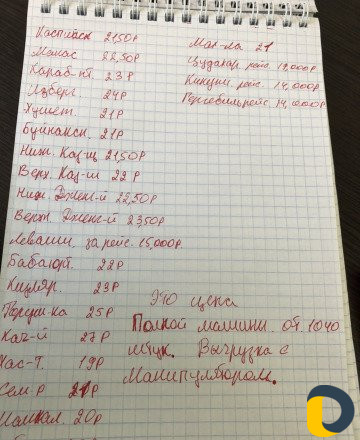 Каспийск 21,50₽
Манас 22,50₽
Караб-кт. 23₽
Избер. 24₽
Хушет. 21₽
Буйнакск. 21₽
Ниж. Каз-щ 21,50₽
Верх. Каз-щ 22₽
Ниж. Дженг-й 22,50₽
Верхн. Дженг-й 23,50₽
Леваши. за рейс. 15,000₽
Бабаюрт. 22₽
Кизляр. 23₽
25₽
27₽
Хас-Т. 19₽
Сем-р 21₽
20₽
Мах-ла 21
Цудахар. рейс. 18,000₽
рейс. 14,000₽
Гергебиль рейс. 14,000₽
Это цена
Полной машины. от. 1040
штук. Выгрузка с
Манипулятором.